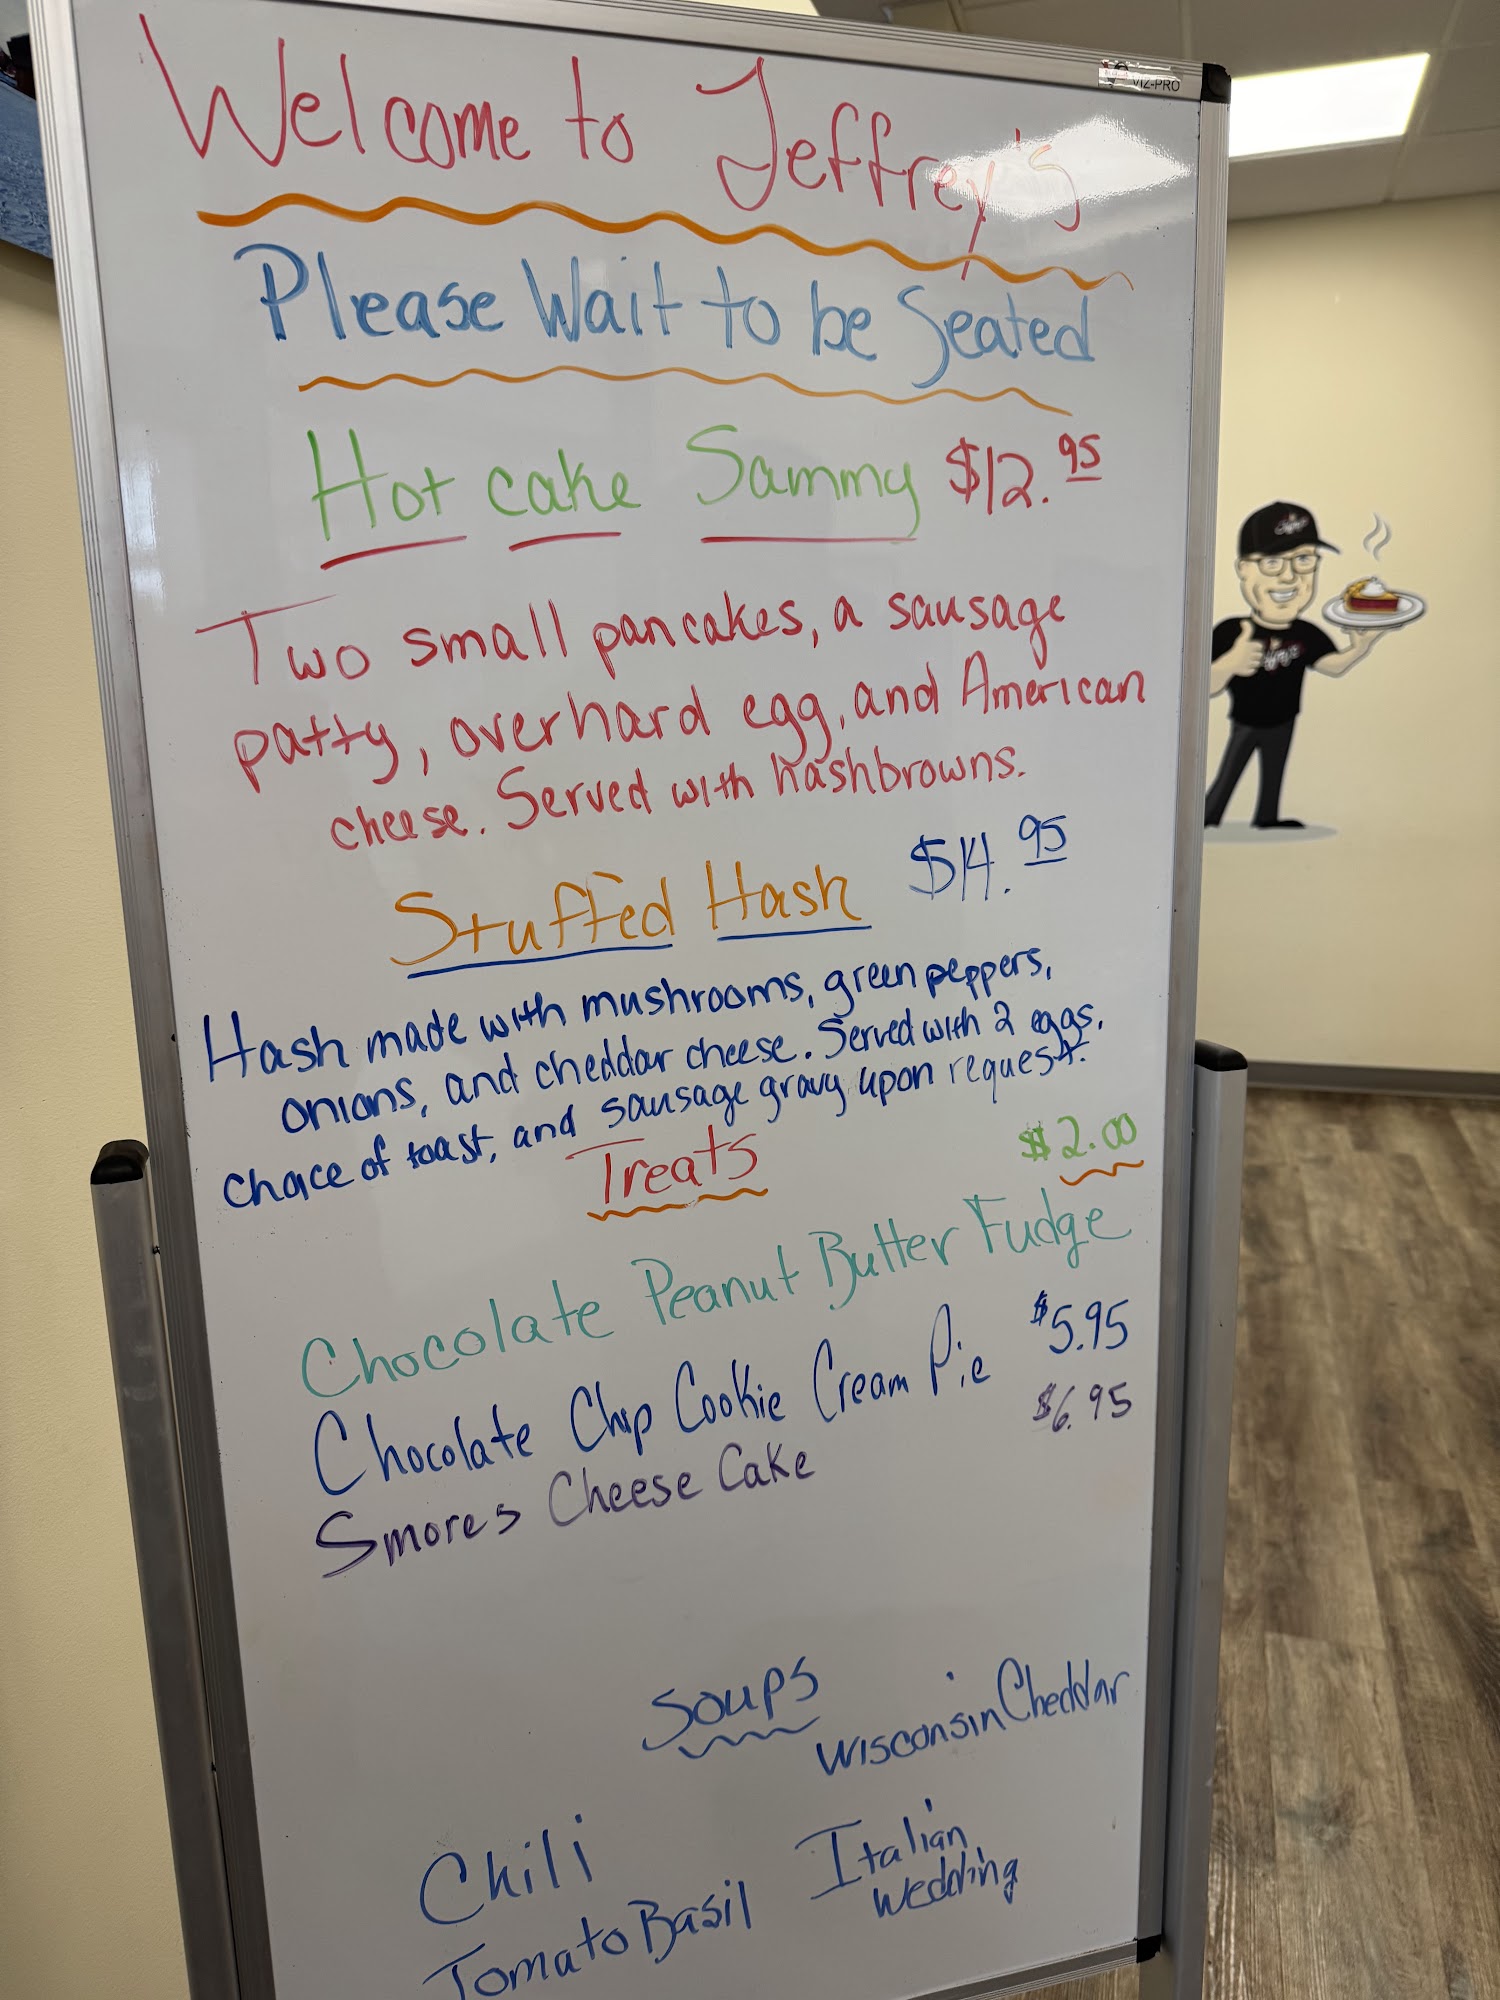 VIZ-PRO
Welcome to Jeffrey's
Please Wait to be Seated
Hot cake Sammy $12.95
Two small pancakes, a sausage
patty, overhard egg, and American
cheese. Served with hashbrowns.
Stuffed Hash $14.95
Hash made with mushrooms, green peppers,
onions, and cheddar cheese. Served with 2 eggs,
choice of toast, and sausage gravy upon request.
Treats $2.00
Chocolate Peanut Butter Fudge
Chocolate Chip Cookie Cream Pie $5.95
Smores Cheese Cake $6.95
Soups
Wisconsin Cheddar
Chili
Italian
Wedding
Tomato Basil